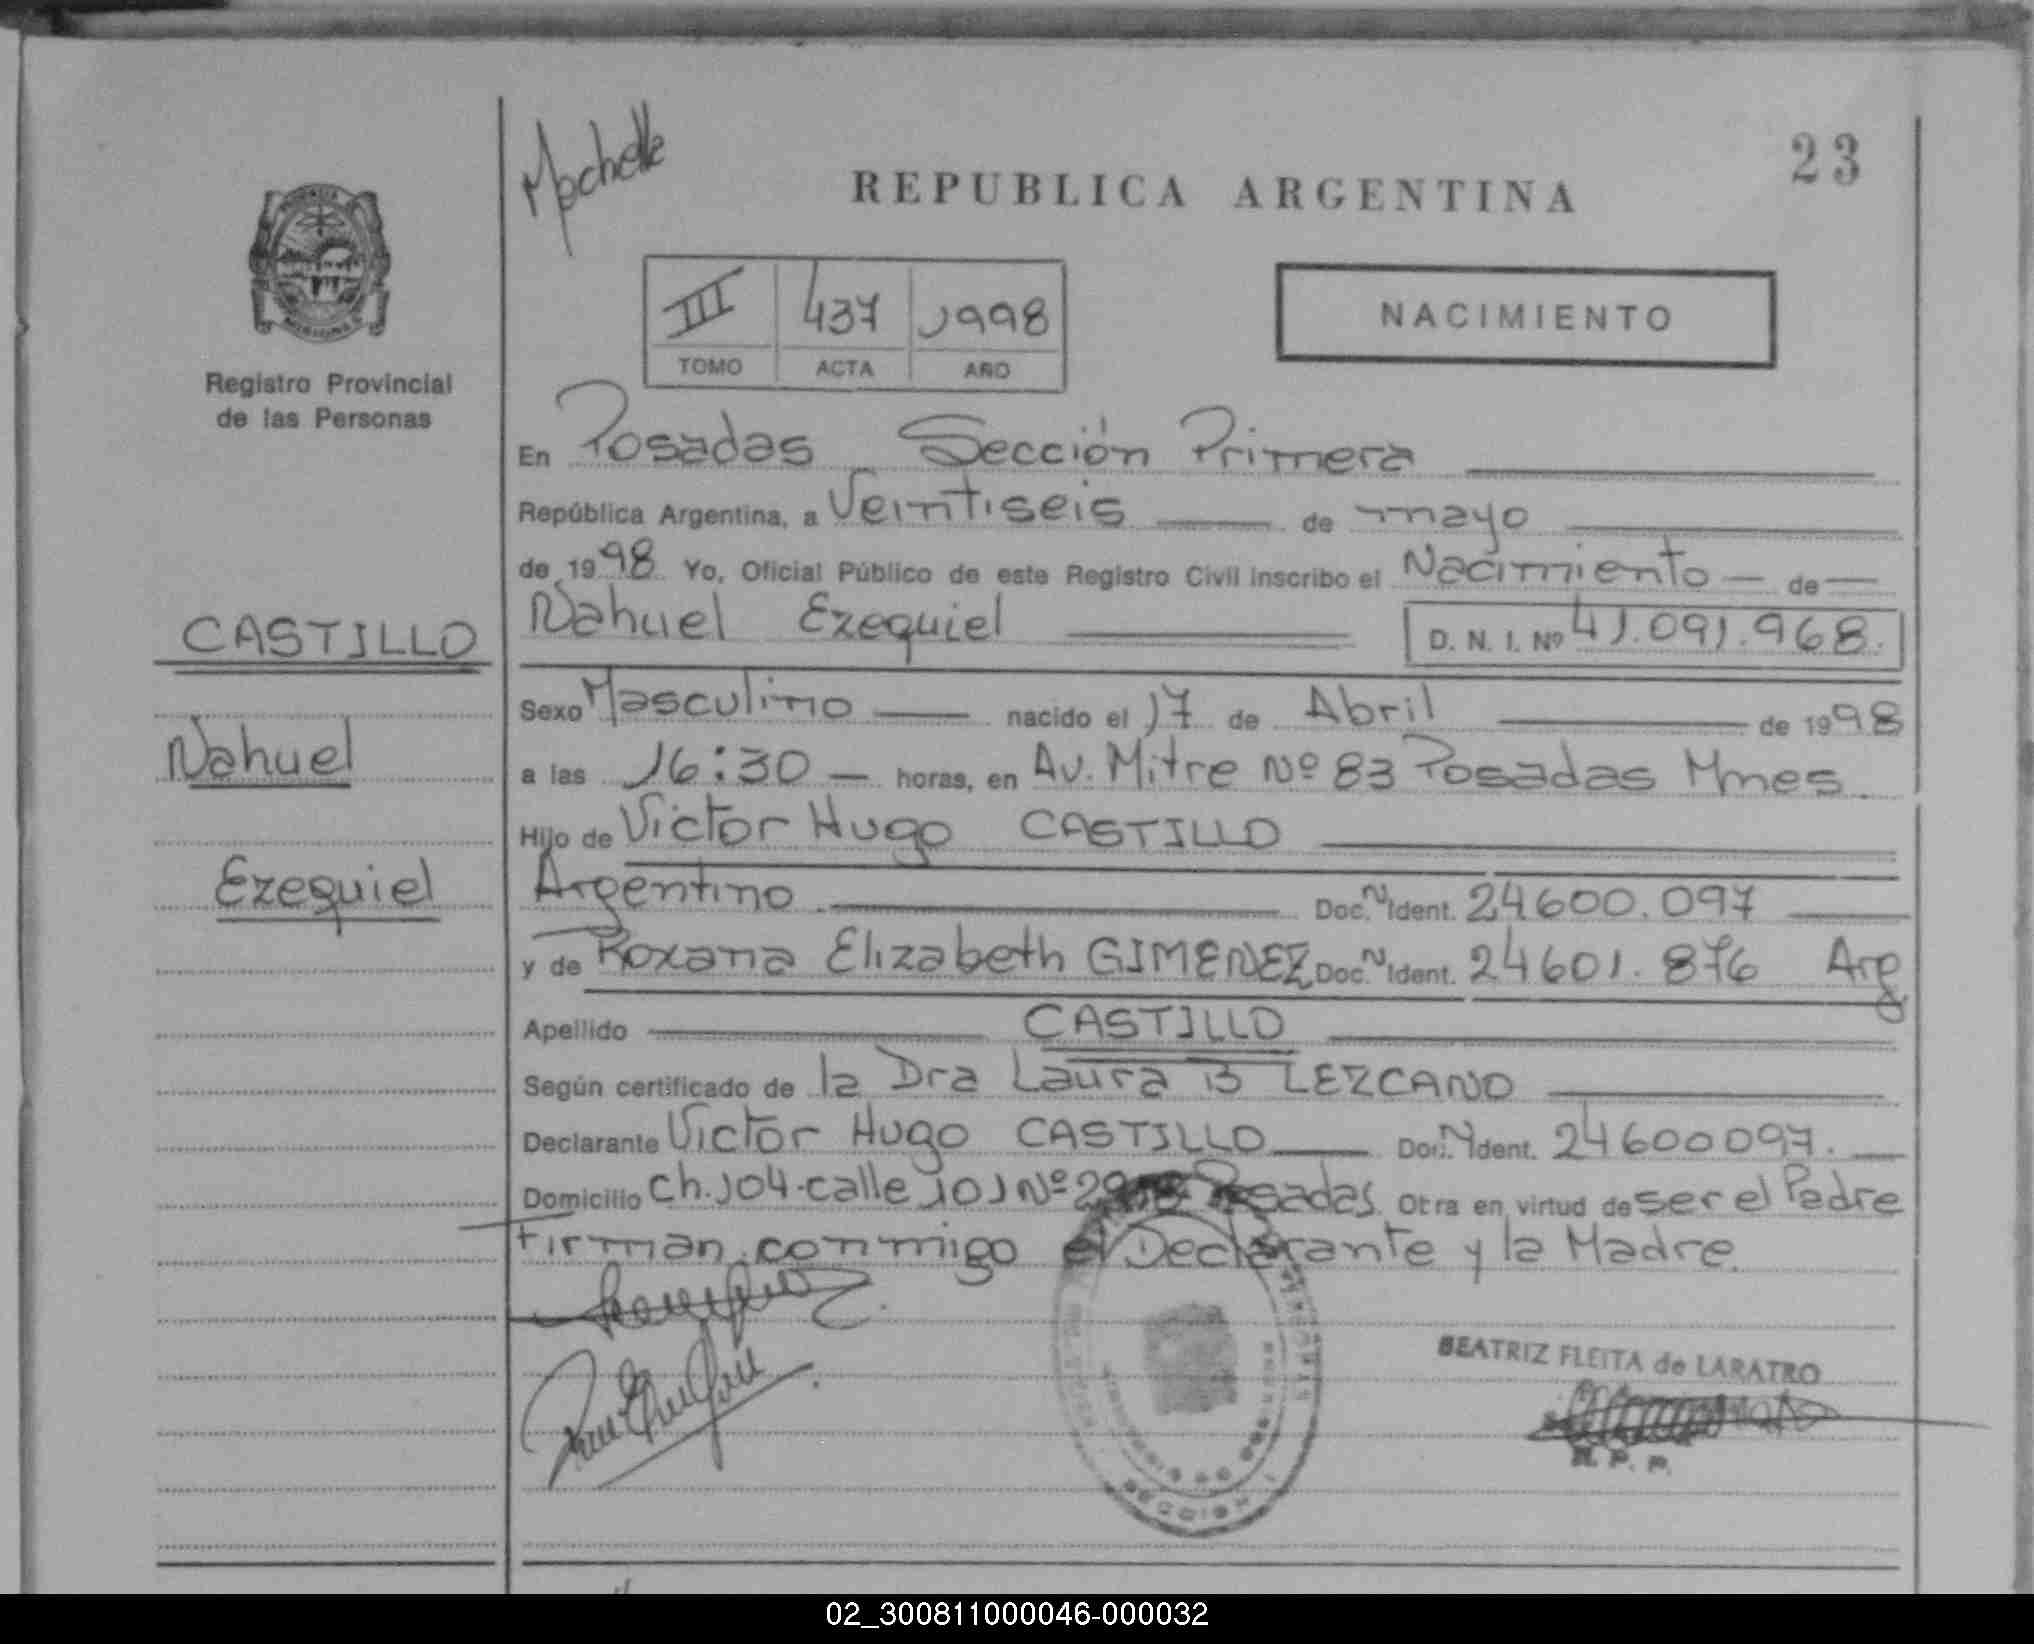 23
Mochelle
REPUBLICA ARGENTINA
III 437 1998
TOMO ACTA AÑO
NACIMIENTO
Registro Provincial
de las Personas
En Posadas Sección Primera
República Argentina, a Veintiseis de mayo
de 1998 Yo, Oficial Público de este Registro Civil inscribo el Nacimiento de
CASTILLO
Nahuel Ezequiel D. N. I. Nº 41.091.968.
Sexo Masculino nacido el 17 de Abril de 1998
Nahuel
a las 16:30 horas, en Av. Mitre Nº 83 Posadas Mnes.
Hijo de Victor Hugo CASTILLO
Ezequiel
Argentino Doc. N Ident. 24600.097
y de Roxana Elizabeth GIMENEZ Doc. N Ident. 24601.876 Arg
Apellido CASTILLO
Según certificado de la Dra Laura B LEZCANO
Declarante Victor Hugo CASTILLO Doc. N Ident. 24600097.
Domicilio Ch. 104-calle 101 Nº Posadas Otra en virtud de ser el Padre
firman conmigo el Declarante y la Madre.
BEATRIZ FLEITA de LARATRO
R. P. P.
SECCION 1
02_300811000046-000032